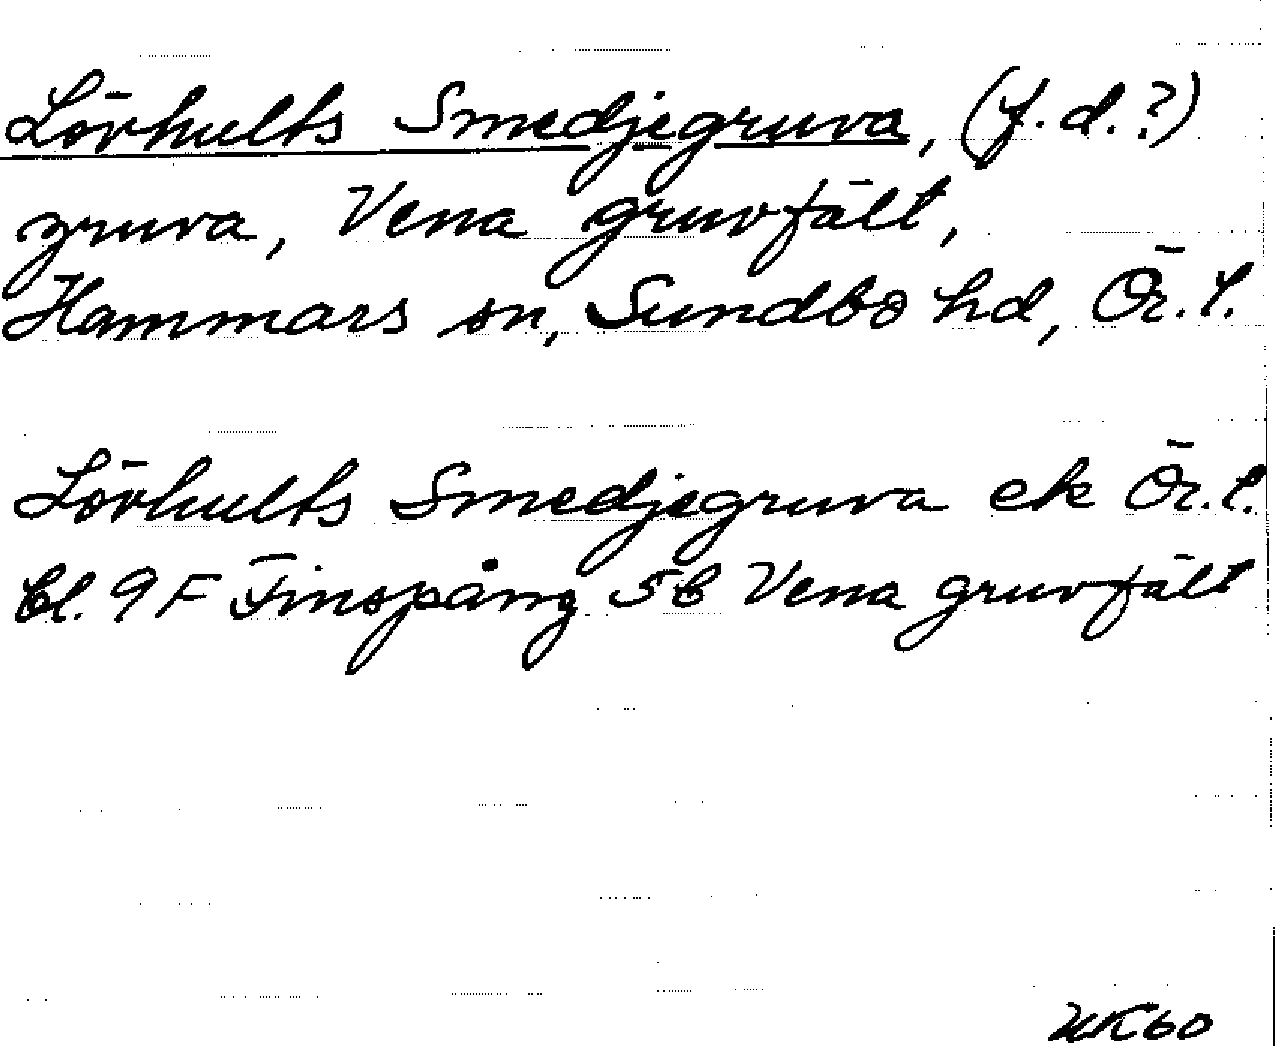 Lövhults Smedjegruva, (f.d.?)
gruva, Vena gruvfält,
Hammars sn, Sundbo hd, Ör.l.
Lövhults Smedjegruva ek Ör.l.
bl. 9F Finspång 5b Vena gruvfält